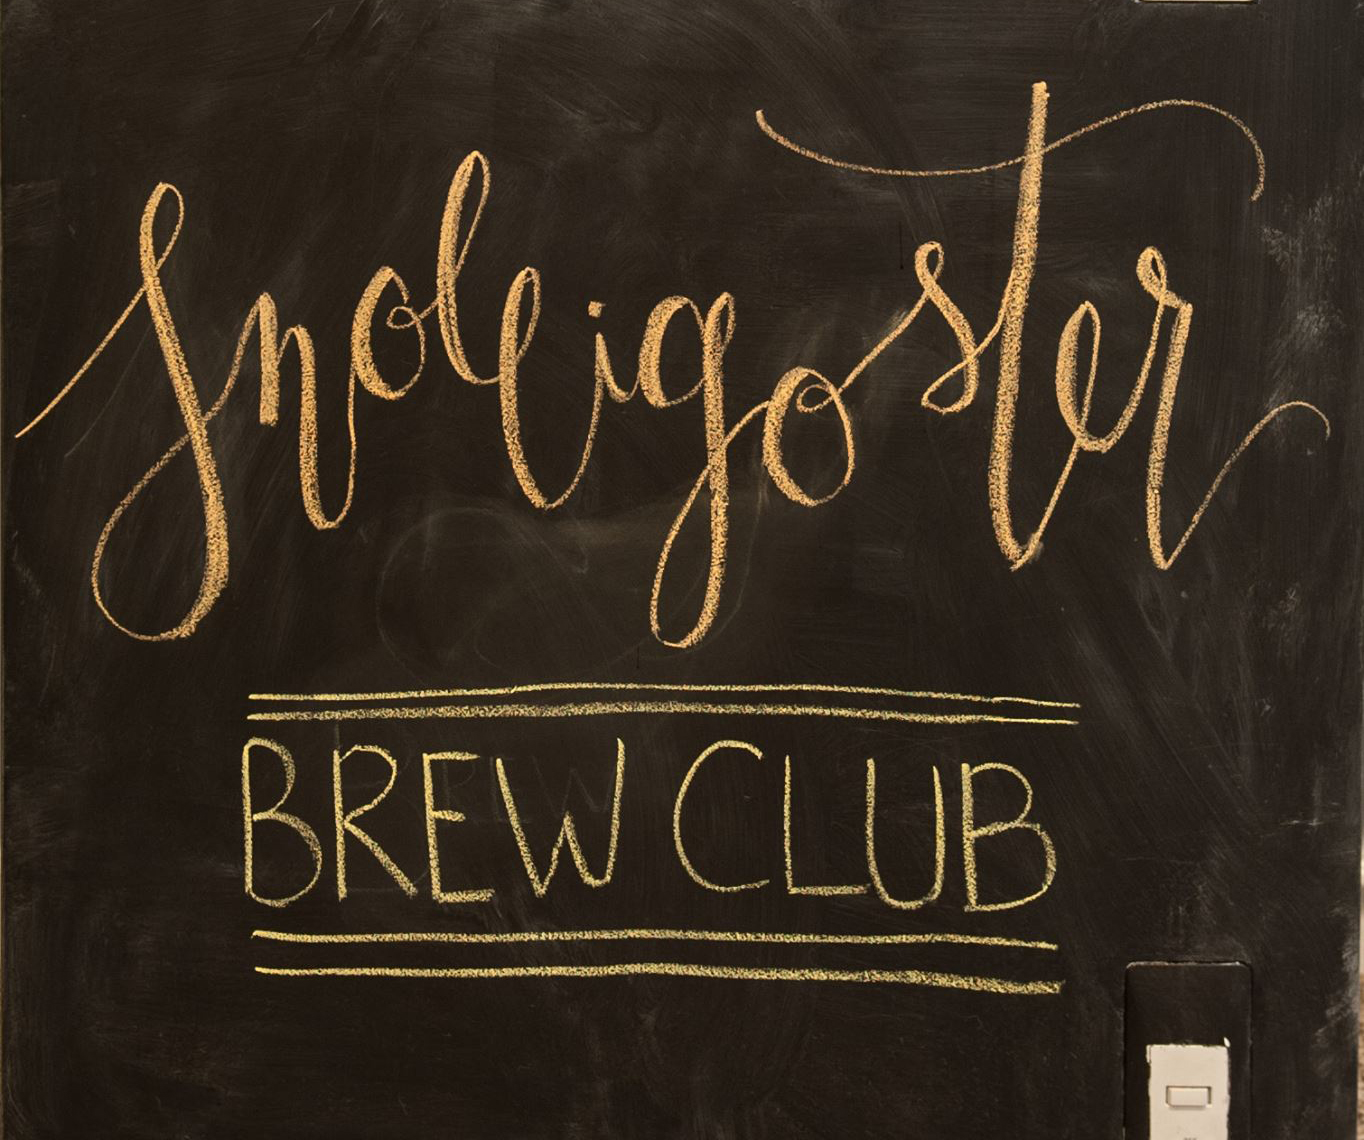 Snolligoster
BREW CLUB